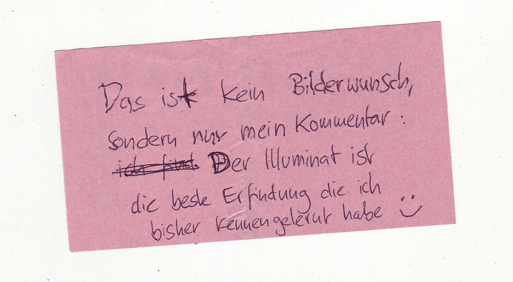 Das ist kein Bilderwunsch,
sondern nur mein Kommentar:
ich find Der Illuminat ist
die beste Erfindung die ich
bisher kennengelernt habe :)